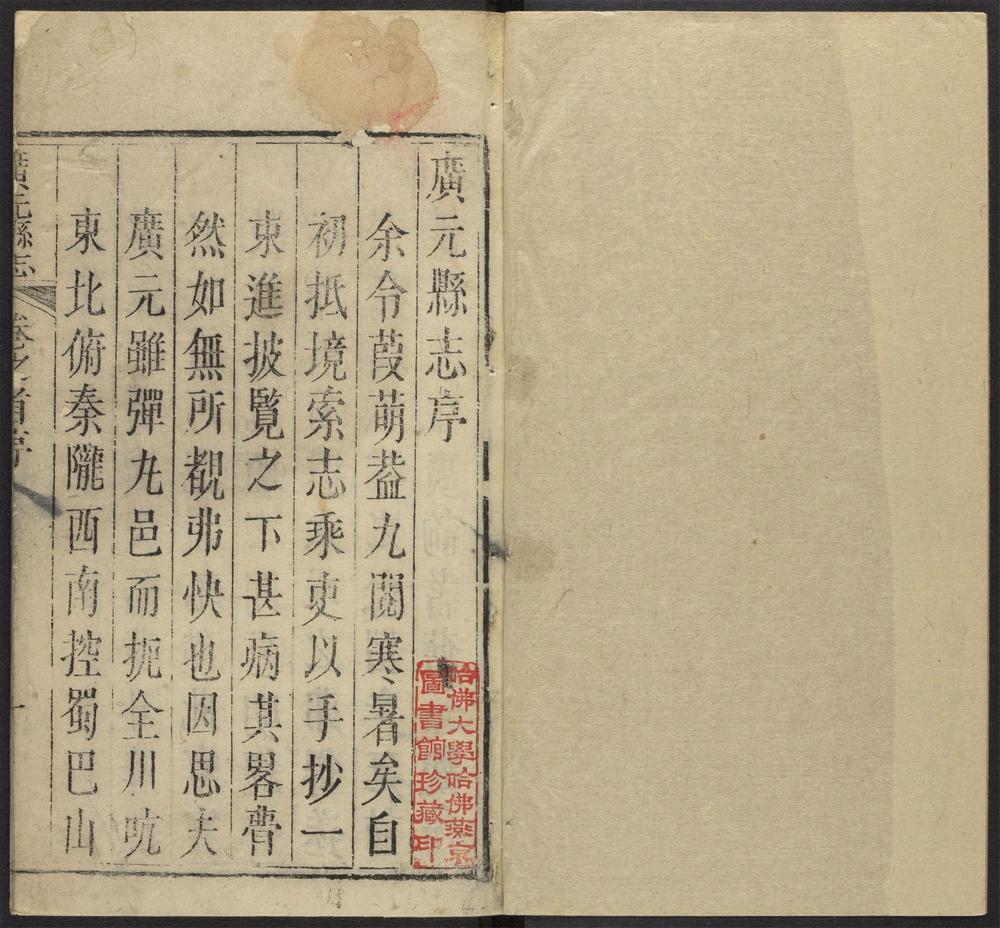 廣元縣志序
余令葭萌葢九閱寒暑矣自
初抵境索志乘吏以手抄一
束進披覽之下甚病其畧瞢
然如無所覩弗快也因思夫
廣元雖彈丸邑而扼全川吭
東北俯秦隴西南控蜀巴山
廣元縣志 卷之首序 一
哈佛大學哈佛燕京
圖書館珍藏印